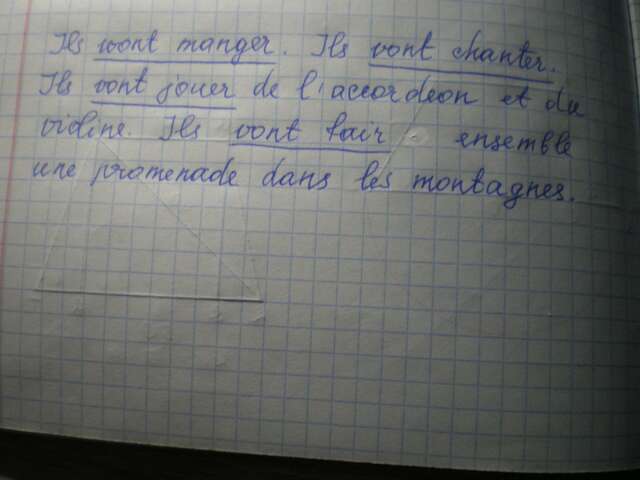 Ils vont manger. Ils vont chanter.
Ils vont jouer de l'accordeon et du
violine. Ils vont fair ensemble
une promenade dans les montagnes.